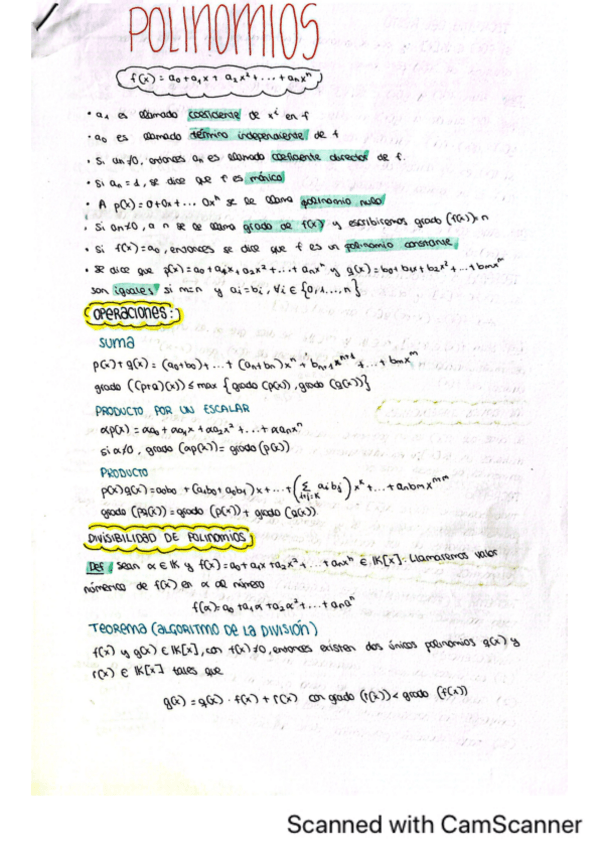 POLINOMIOS
f(x) = a₀+a₁x+ a₂x²+...+aₙxⁿ
• a₁ es llamado coeficiente de xⁱ en f
• a₀ es llamado término independiente de f
• Si aₙ≠0, entonces aₙ es llamado coeficiente director de f.
• Si aₙ = 1, se dice que f es mónico
• A p(x) = 0+0x+... 0xⁿ se le llama polinomio nulo
• Si aₙ≠0, a n se le llama grado de f(x) y escribiremos grado (f(x))=n
• Si f(x)=a₀, entonces se dice que f es un polinomio constante
• Se dice que p(x)=a₀+a₁x+a₂x²+...+aₙxⁿ y q(x)=b₀+b₁x+b₂x²+...+bₘxᵐ
son iguales si m=n y aᵢ=bᵢ, ∀i ∈ {0,1,...,n}
OPERACIONES:
SUMA
p(x)+q(x) = (a₀+b₀)+...+ (aₙ+bₙ)xⁿ + bₙ₊₁xⁿ⁺¹+...+ bₘxᵐ
grado ((p+q)(x)) ≤ max {grado (p(x)), grado (q(x))}
PRODUCTO POR UN ESCALAR
αp(x) = αa₀ + αa₁x + αa₂x²+...+ αaₙxⁿ
si α≠0, grado (αp(x)) = grado (p(x))
PRODUCTO
p(x)q(x) = a₀b₀ + (a₁b₀+a₀b₁)x+...+(Σ i+j=k aᵢbⱼ)xᵏ+...+aₙbₘxᵐ⁺ⁿ
grado (pq(x)) = grado (p(x)) + grado (q(x))
DIVISIBILIDAD DE POLINOMIOS
Def: Sean α ∈ IK y f(x) = a₀+a₁x+a₂x²+...+aₙxⁿ ∈ IK[x]. Llamaremos valor
númerico de f(x) en α al número
f(α) = a₀+a₁α+a₂α²+...+aₙαⁿ
TEOREMA (ALGORITMO DE LA DIVISIÓN)
f(x) y g(x) ∈ IK[x], con f(x)≠0, entonces existen dos únicos polinomios q(x) y
r(x) ∈ IK[x] tales que
g(x) = q(x) · f(x) + r(x) con grado (r(x)) < grado (f(x))
Scanned with CamScanner